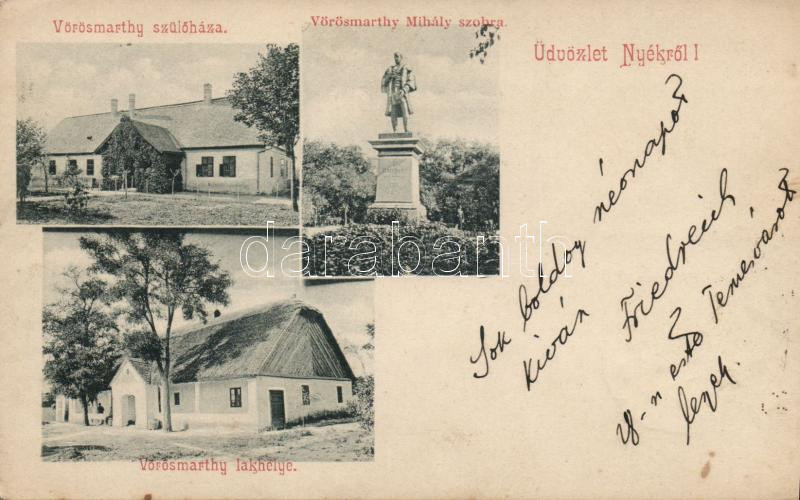 Vörösmarthy szülőháza.
Vörösmarthy Mihály szobra.
Üdvözlet Nyékről!
Sok boldog névnapot
kíván
Friedreich
18-n este Temesvárott
leszek.
Vörösmarthy lakhelye.
darabanth